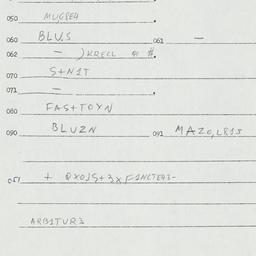 050 MUGSEH.
060 BLU,S 061 —
062 — )KRECL OF $.
070 S+N1T
071 —.
080 FAS+TOYN
090 BLUZN 091 MAZO,LR1S
051 + OXOJS+3XF1NCTE43-
ARB1TUR3